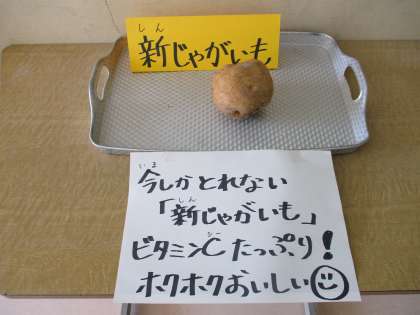 しん
新じゃがいも
いま
今しかとれない
しん
「新じゃがいも」
シー
ビタミンCたっぷり!
ホクホクおいしい